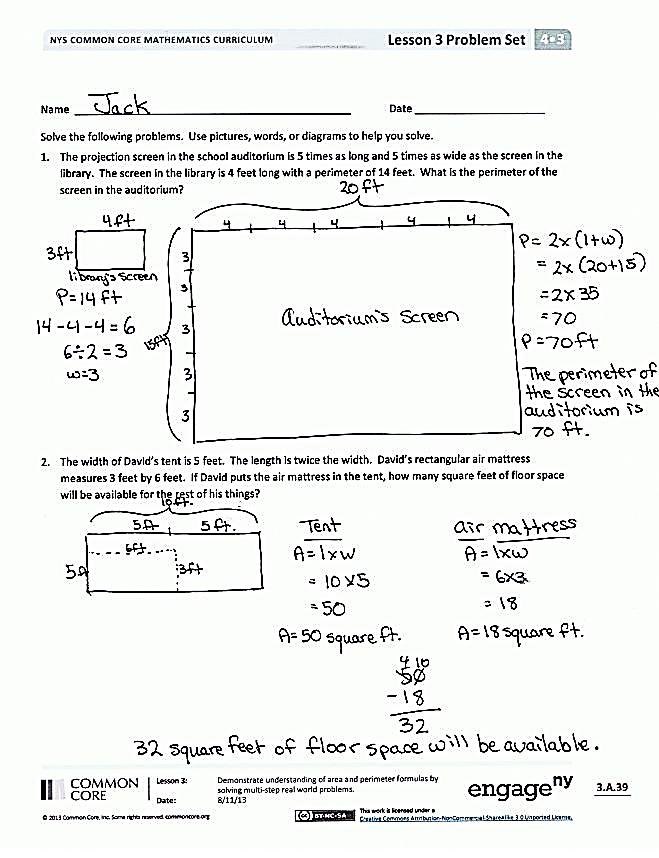 NYS COMMON CORE MATHEMATICS CURRICULUM Lesson 3 Problem Set 4•3
Name Jack Date
Solve the following problems. Use pictures, words, or diagrams to help you solve.
1. The projection screen in the school auditorium is 5 times as long and 5 times as wide as the screen in the
library. The screen in the library is 4 feet long with a perimeter of 14 feet. What is the perimeter of the
screen in the auditorium?
20ft
4ft
4 4 4 4 4
3ft
library's screen
P=14ft
14-4-4=6
6÷2=3
w=3
15ft
3
3
3
3
3
Auditorium's Screen
P= 2x(l+w)
= 2x(20+15)
=2x35
=70
P=70ft
The perimeter of
the screen in the
auditorium is
70 ft.
2. The width of David's tent is 5 feet. The length is twice the width. David's rectangular air mattress
measures 3 feet by 6 feet. If David puts the air mattress in the tent, how many square feet of floor space
will be available for the rest of his things?
10ft.
5ft 5ft.
6ft
5ft
3ft
Tent
A=lxw
=10x5
=50
A=50 square ft.
air mattress
A=lxw
=6x3
=18
A=18 square ft.
4 10
50
-18
32
32 square feet of floor space will be available.
COMMON
CORE
Lesson 3:
Date:
Demonstrate understanding of area and perimeter formulas by
solving multi-step real world problems.
8/11/13
engage ny
3.A.39
© 2013 Common Core, Inc. Some rights reserved. commoncore.org
(cc) BY-NC-SA
This work is licensed under a
Creative Commons Attribution-NonCommercial-ShareAlike 3.0 Unported License.